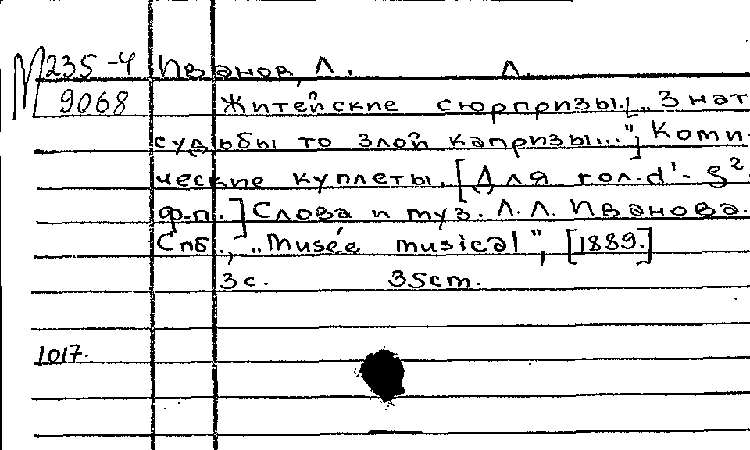 М 235-4 Иванов, Л. Л.
9068 Житейские сюрпризы. [„Знать
судьбы то злой капризы..."] Коми-
ческие куплеты. [Для гол. d¹-g²
ф.п.] Слова и муз. Л. Л. Иванова.
Спб., „Musée musical", [1889.]
3 с. 35 cm.
1017.